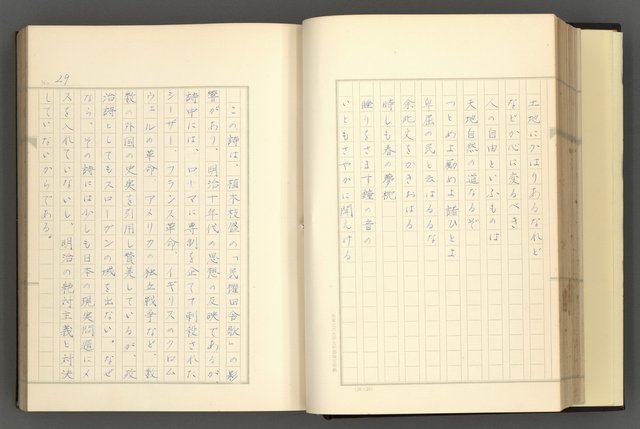 土地にかはりあるなれど
などか心に変るべき
人の自由といふものは
天地自然の道なるぞ
つとめよ励めよ諸ひとよ
卑屈の民と云はるるな
余此文をかきおはる
時しも春の夢枕
睡りをさます鐘の音の
いともさやかに聞えける
No. 29
この詩は、植木枝盛の「民権田舎歌」の影
響があり、明治十年代の思想の反映であるが、
詩中には、ローマに専制を企てて刺殺された
シーザー、フランス革命、イギリスのクロム
ウェルの革命、アメリカの独立戦争など、数
数の外国の史実を引用し賛美しているが、政
治詩としてもスローガンの域を出ない。なぜ
なら、その詩には少しも日本の現実問題にメ
スを入れていないし、明治の絶対主義と対決
していないからである。